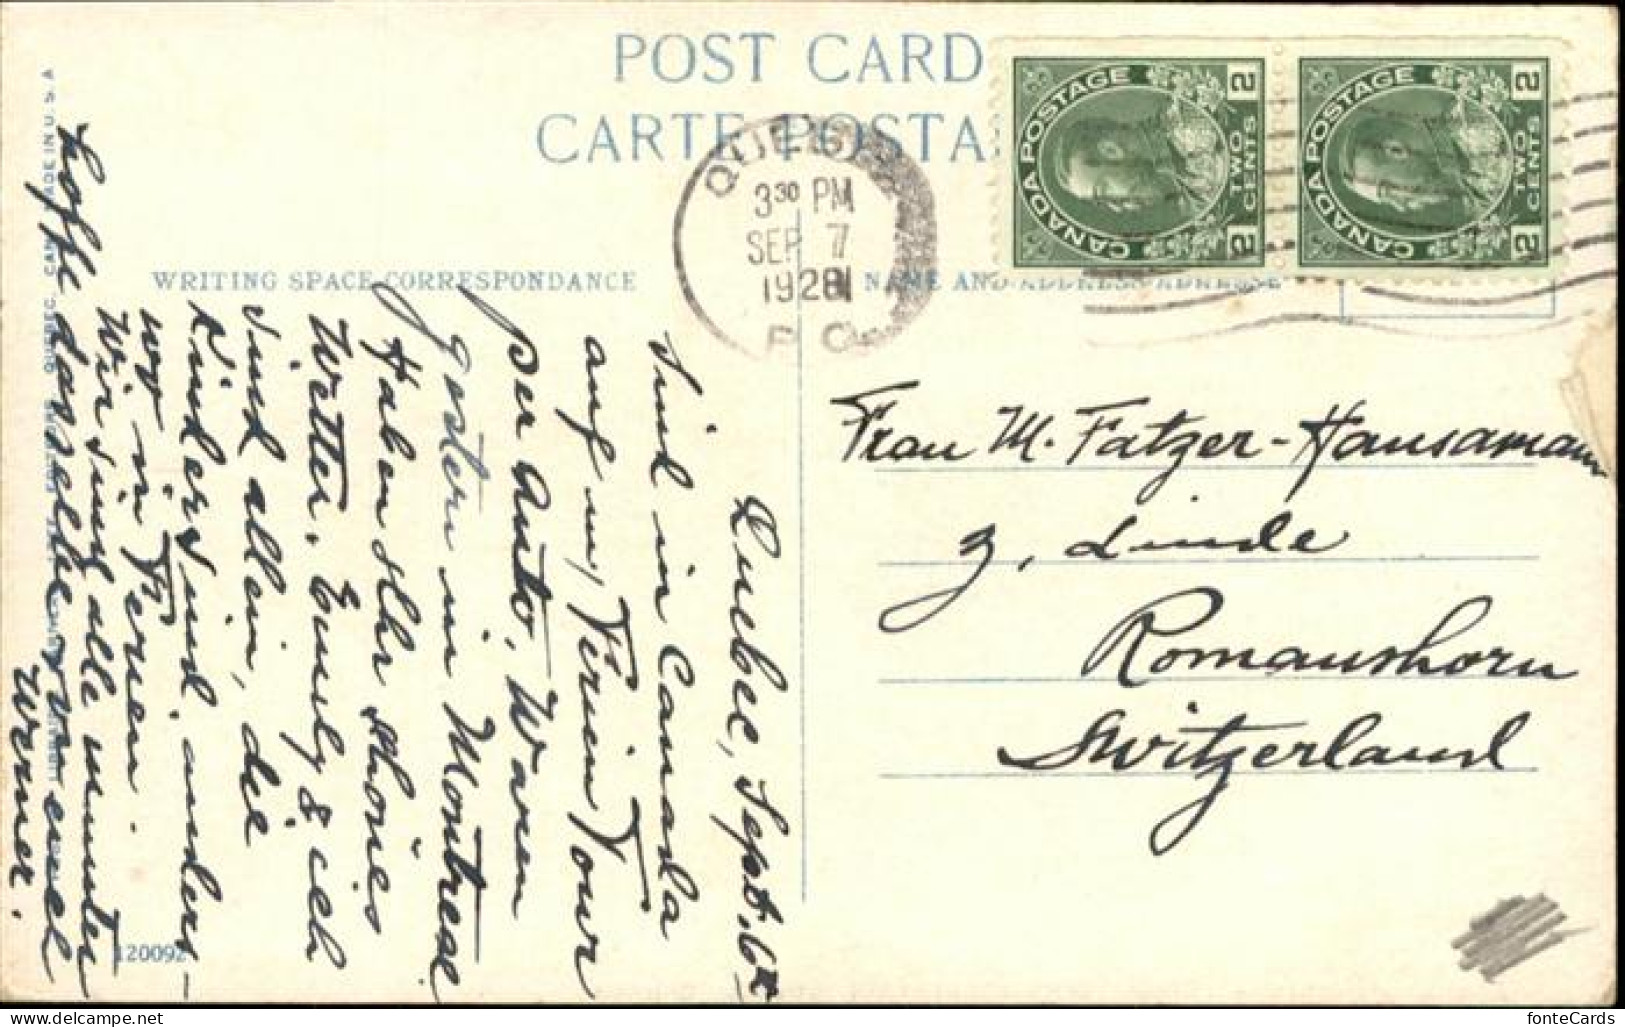 POST CARD
CARTE POSTA
CANADA POSTAGE
2 TWO CENTS 2
CANADA POSTAGE
2 TWO CENTS 2
3 30 PM
SEP 7
1928
P Q
WRITING SPACE-CORRESPONDANCE
NAME AND ADDRESS-ADRESSE
Quebec, Sept. 6th
Sind in Canada
auf
Tour
per Auto. Waren
gestern in Montreal
Haben sehr schönes
Wetter. Emily & ich
sind allein, die
Kinder sind anders-
wo in Ferien.
Wir sind alle munter
hoffe dasselbe von euch
Werner.
Frau M. Fatzer-Hausammann
z. Linde
Romanshorn
Switzerland
120092
MADE IN U. S. A
QUEBEC, CAN
fonteCards